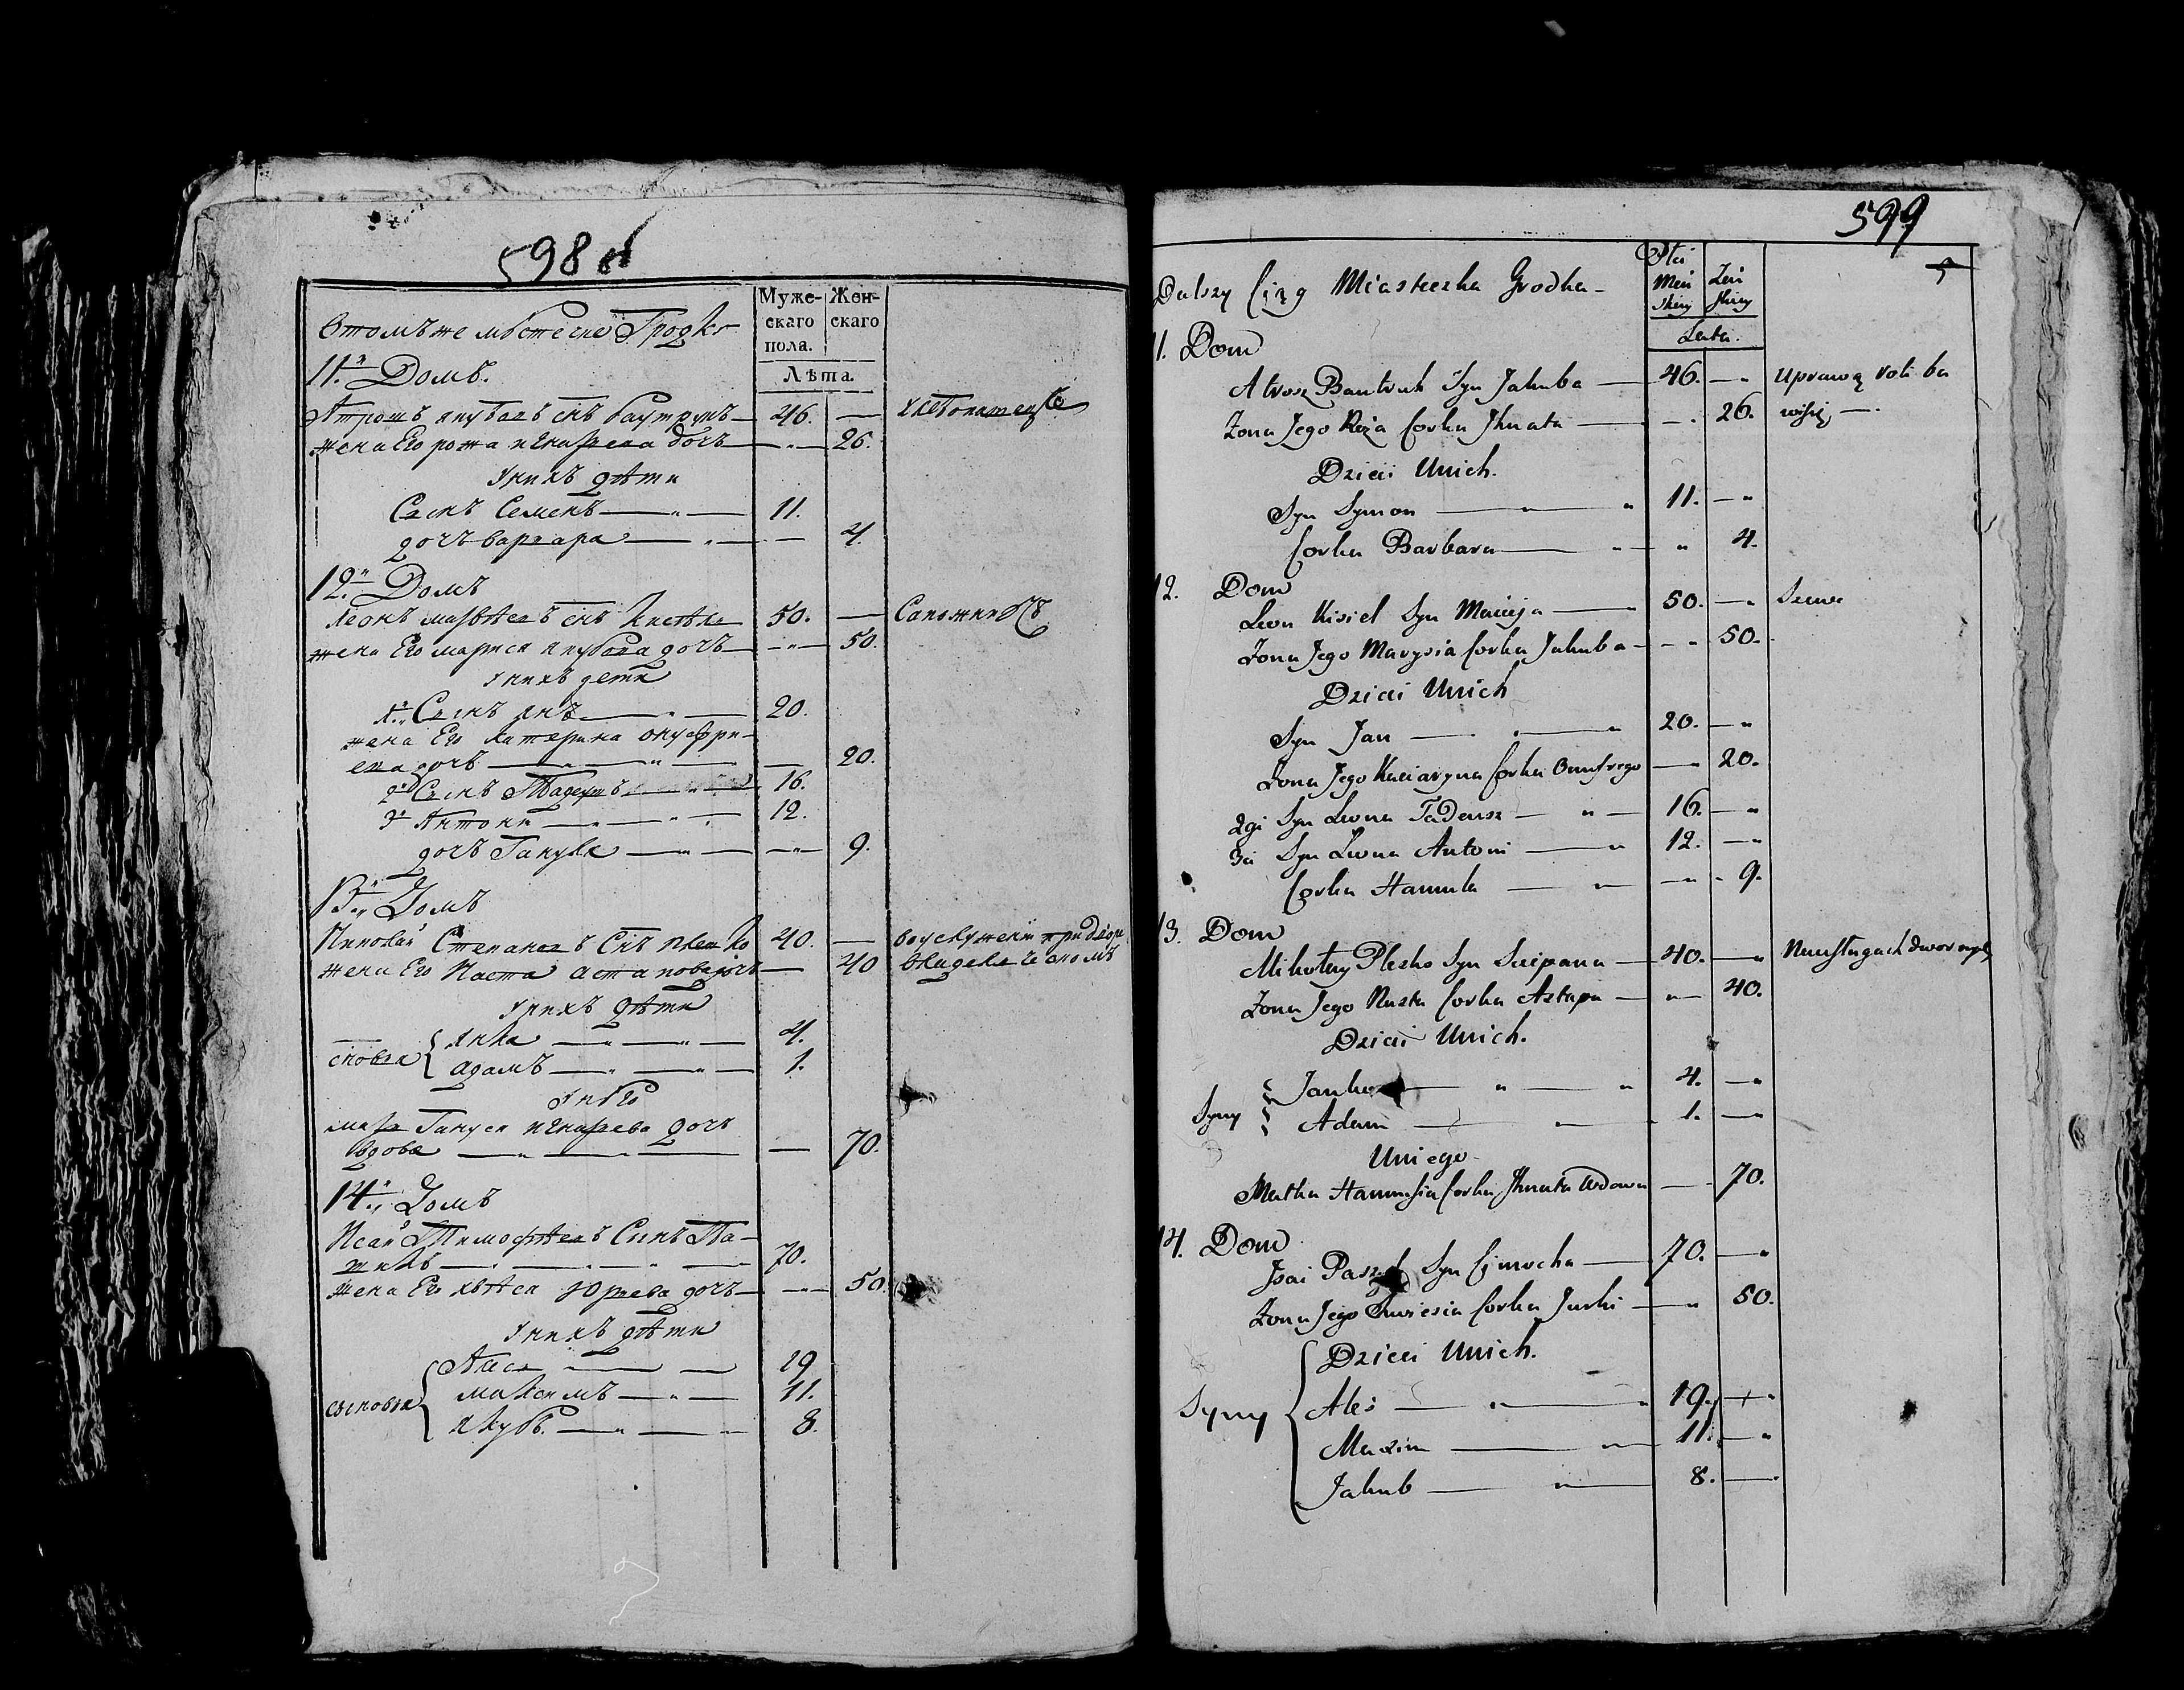 598 об
Втомъже мѣстечке Гродкѣ
Муже-
скаго
пола.
Жен-
скаго
Лѣта.
11.й Домъ.
Атрошъ якубовъ снъ баутрукъ — 46. — хлебопашецъ
жена Его рожа игнатева дочь — 26.
Унихъ дѣти
Сынъ Семенъ — 11.
дочь варвара — 4.
12.й Домъ
Леонъ матвѣевъ снъ Кисѣль 50. — Сапожник
жена Его марися якубова дочь — 50.
Унихъ дети
1й Сынъ янъ — 20.
жена Его катерина онуфри-
ева дочь — 20.
2й Сынъ Тадеушъ — 16.
3й Антони — 12.
дочь Ганулка — 9.
13.й Домъ
Николай Степановъ снъ плешко 40. — воуслужени придвори
жена Его Наста астапова дочь — 40
Унихъ дѣти
сыновья { Янка — 4.
адамъ — 1.
Унего
мать Гануся игнатева дочь
вдова — 70.
14.й Домъ
Исай Тимофѣевъ Синъ Па-
шкѣ — 70.
жена Его хвѣся Юрева дочь — 50.
Унихъ дѣти
сыновья { Алесь — 19
максимъ — 11.
якубъ — 8.
599
Dalszy Ciąg Miasteczka Grodka —
Płci
Męs
skiej
Żeń
skiey
Lata.
9
11. Dom
Atrosz Bautruk Syn Jakuba — 46. — Uprawą roli ba
Zona Jego Róża Corka Jhnata — 26. wisię —
Dzieci Unich.
Syn Symon — 11. —
Corka Barbara — 4.
12. Dom
Leon Kisiel Syn Macieja — 50. — Szewc
Zona Jego Marysia Corka Jakuba — 50.
Dzieci Unich
Syn Jan — 20. —
Zona Jego Kaciaryna Corka Onufrego — 20.
2gi Syn Leona Tadeusz — 16. —
3ci Syn Leona Antoni — 12. —
Corka Hanulka — 9.
13. Dom
Mikołay Pleszko Syn Sciepana — 40. — Nausługach dwornych
Zona Jego Nasta Corka Astapa — 40.
Dzieci Unich.
Syny { Janko — 4. —
Adam — 1. —
Uniego
Matka Hanusia Corka Jhnata Wdowa — 70.
14. Dom
Jsai Syn Cimocha — 70. —
Zona Jego Chwiesia Corka Jurki — 50.
Dzieci Unich.
Syny { Aleś — 19. —
Maxim — 11. —
Jakub — 8. —